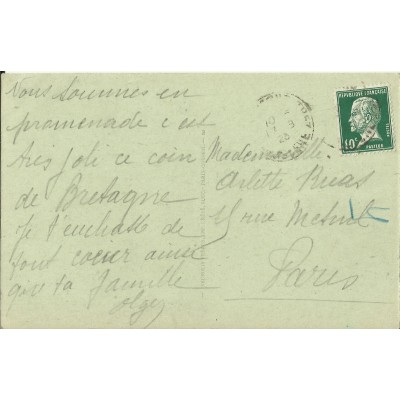 Nous sommes en
promenade c est
très joli ce coin
de Bretagne
Je t'embrasse de
tout coeur ainsi
que ta famille
Olga
Mademoiselle
Arlette
15 rue Mesnil
Paris
REPUBLIQUE FRANCAISE
10c
PASTEUR